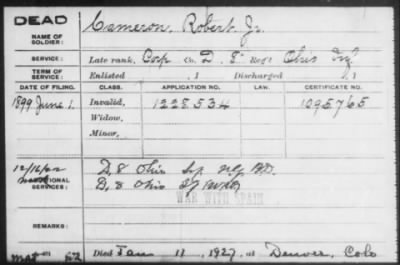 DEAD
NAME OF SOLDIER: Cameron, Robert, Jr.
SERVICE: Late rank, Corp Co. D, 8" Reg't Ohio Inf
TERM OF SERVICE: Enlisted , 1 Discharged , 1
DATE OF FILING. CLASS. APPLICATION NO. LAW. CERTIFICATE NO.
1899 June 1. Invalid, 1228.534 1095765
Widow,
Minor,
12/16/02
ADDITIONAL SERVICES: D, 8 Ohio
D, 8 Ohio
WAR WITH SPAIN
REMARKS:
Died Jan 11, 1927, at Denver, Colo